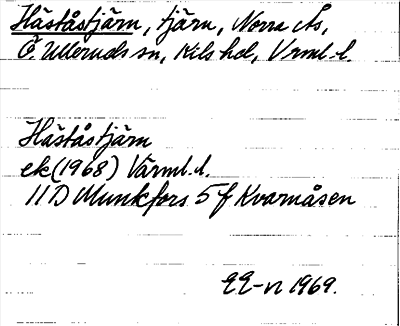 Häståstjärn, tjärn, Norra Ås,
Ö. Ulleruds sn, Kils hd, Vrml. l.
Häståstjärn
ek (1968) Värml. l.
11 D Munkfors 5 f Kvarnåsen
1969.